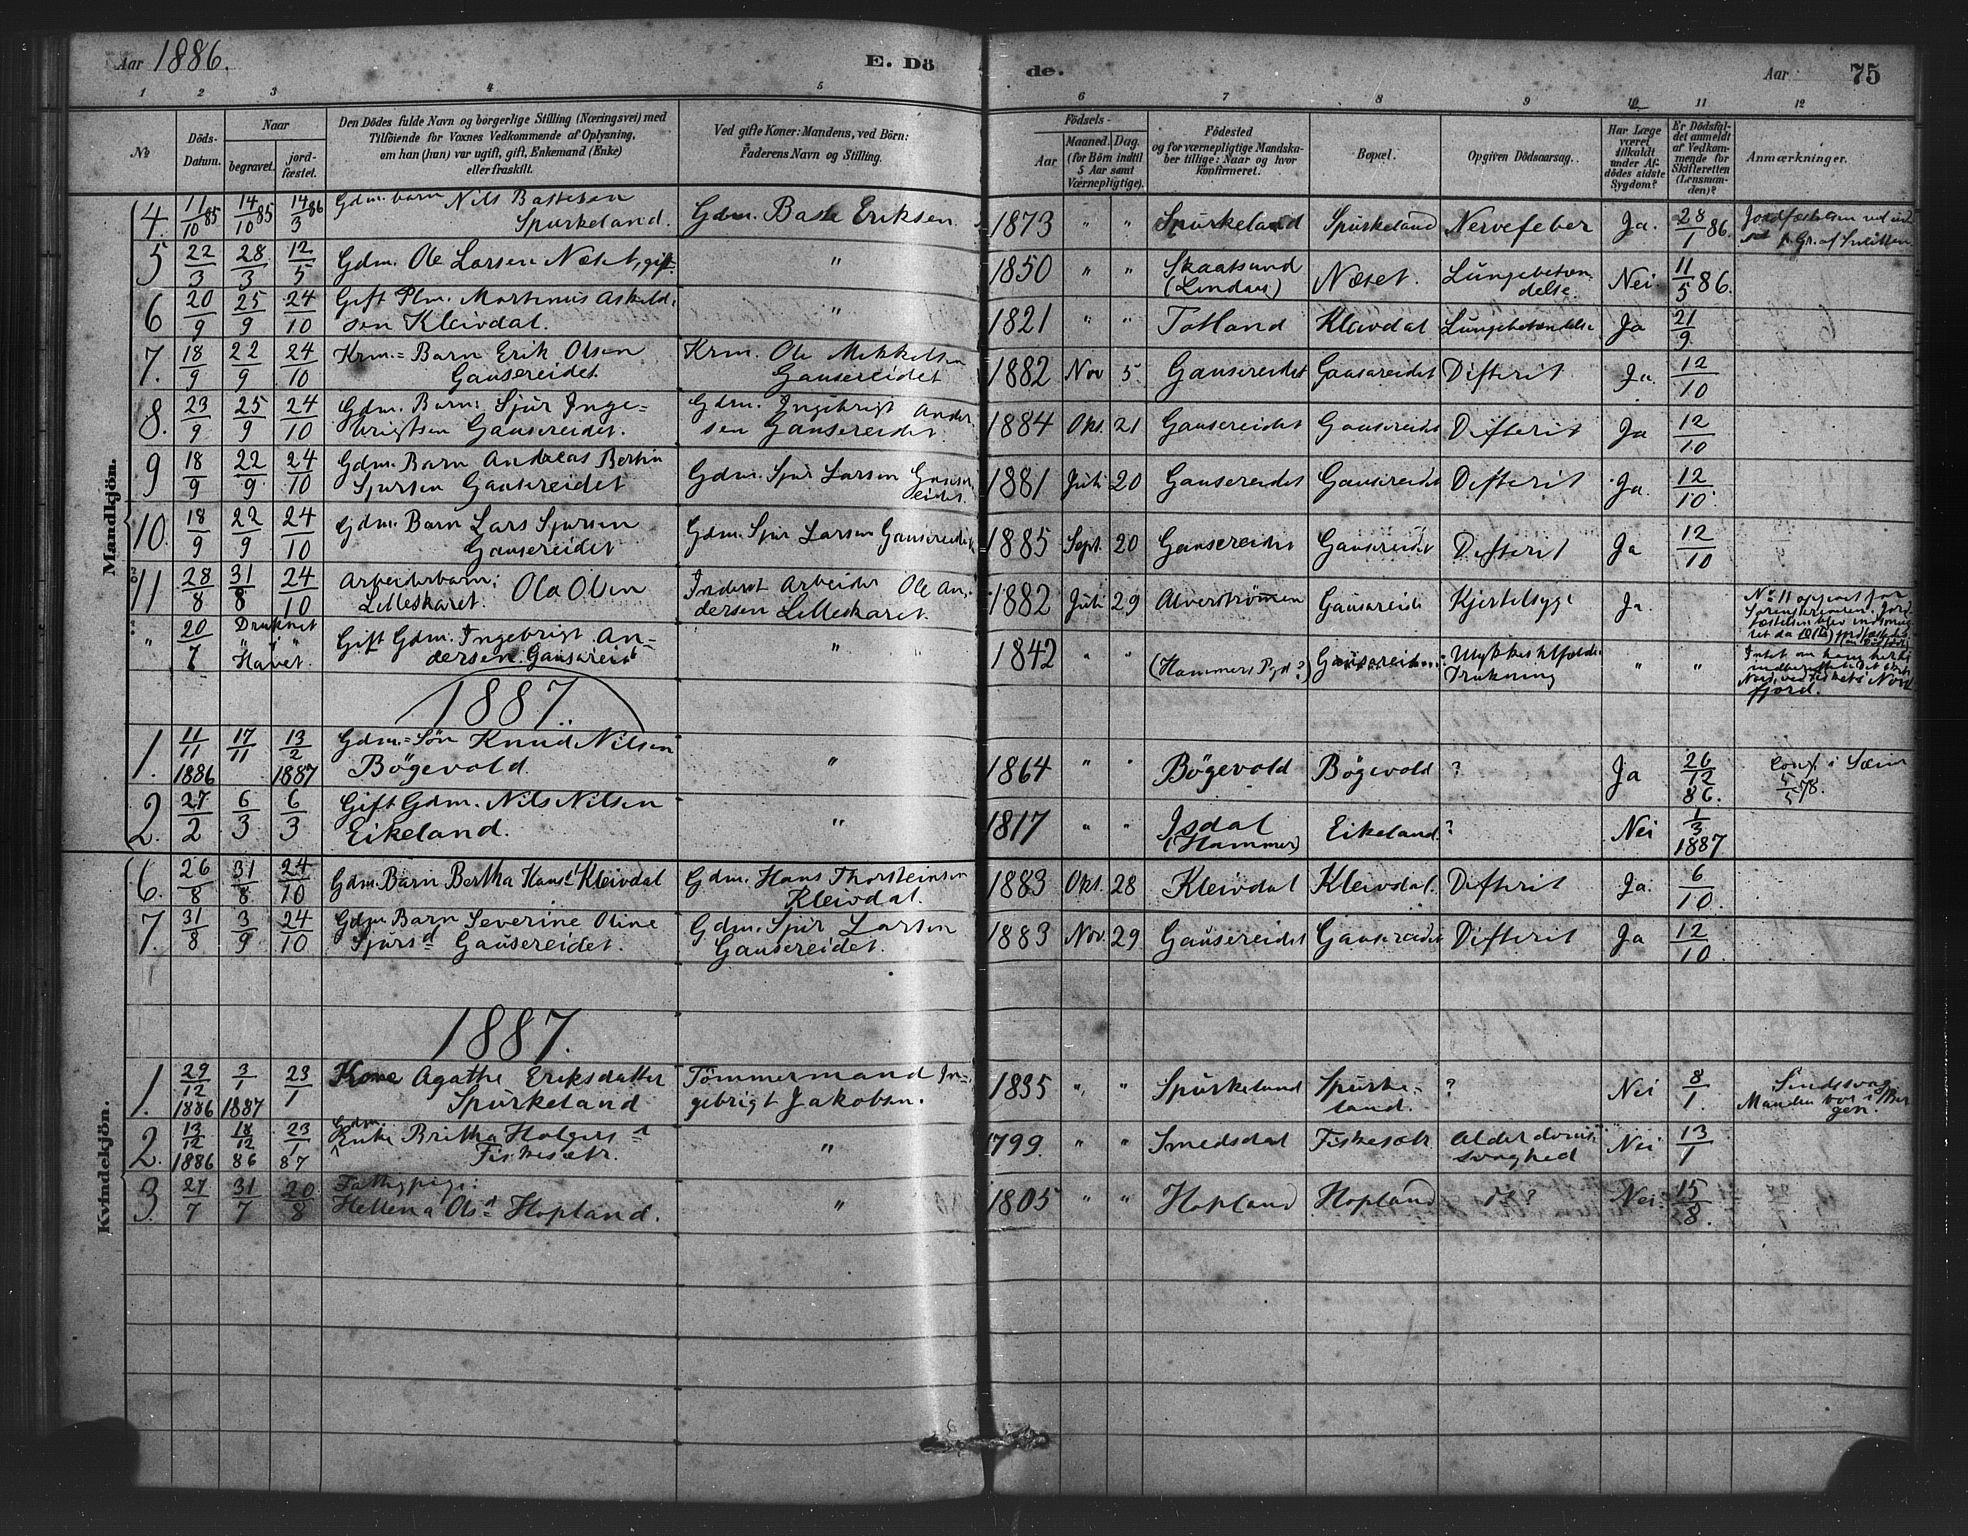 Aar 1886. E. Dö
de. Aar 75
1 2 3 4 5 6 7 8 9 10 11 12
No
Döds-Datum.
Naar
begravet.
jord-fæstet.
Den Dödes fulde Navn og borgerlige Stilling (Næringsvei) med
Tilföiende for Voxnes Vedkommende af Oplysning,
om han (hun) var ugift, gift, Enkemand (Enke)
eller fraskilt.
Ved gifte Koner: Mandens, ved Börn:
Faderens Navn og Stilling.
Födsels-
Aar
Maaned. Dag.
(for Börn indtil
5 Aar samt
Værnepligtige).
Födested
og for værnepligtige Mandska-
ber tillige: Naar og hvor
konfirmeret.
Bopæl.
Opgiven Dödsaarsag.
Har Læge
været
tilkaldt
under Af-
dödes sidste
Sygdom?
Er Dödsfal-
det anmeldt
af Vedkom-
mende for
Skifteretten
(Lensman-
den)?
Anmærkninger.
Mandkjön.
4. 11/10 85 14/10 85 14/3 86 Gdm. barn Nils Bastesen
Spurkeland. Gdm. Baste Eriksen 1873 " " Spurkeland Spurkeland Nervefeber Ja. 28/1 86.
5 22/3 28/3 12/5 Gdm. Ole Larsen Næset, gift. " 1850 " " Skaatsund
(Lindaas) Næset. Lungebetæn-
delse. Nei. 11/5 86.
6 20/9 25/9 24/10 Gift Plm. Martinus Askeld-
sen Kleivdal. " 1821 " " Totland Kleivdal Lungebetændelse Ja 21/9
7. 18/9 22/9 24/10 Krm.= Barn Erik Olsen
Gausereidet Krm. Ole Mikkelsen
Gausereidet 1882 Nov 5. Gausereidet Gausereidet Difterit Ja. 12/10
8. 23/9 25/9 24/10 Gdm. Barn: Sjur Inge=
brigtsen Gausereidet. Gdm. Ingebrigt Ander
sen Gausereidet 1884 Okt. 21 Gausereidet Gausereidet Difterit Ja 12/10
9 18/9 22/9 24/10 Gdm. Barn Andreas Bertin
Sjursen Gausereidet Gdm. Sjur Larsen Gauser
eidet. 1881 Juli 20 Gausereidet Gausereidet Difterit Ja. 12/10.
10. 18/9 22/9 24/10 Gdm. Barn Lars Sjursen
Gausereidet Gdm. Sjur Larsen Gausereidet 1885 Sept. 20 Gausereidet Gausereidet Difterit Ja 12/10
11 28/8 31/8 24/10 Arbeiderbarn: Ole Olsen
Lilleskaret. Inderst Arbeider Ole An-
dersen Lilleskaret. 1882 Juli 29 Alverströmen Gausereide Kjertelsyge Ja.
" 20/7 Druknet
" i "
Havet. Gift Gdm. Ingebrigt An-
dersen Gausereidet " 1842 " " (Hammers Pgd?) Gausereidet Ulykkestilfælde:
Drukning " "
fjord.
1887.
1. 11/11 1886 17/11 13/2 1887 Gdm.= Søn Knud Nilsen
Bögevold. " 1864 " " Bögevold Bögevold ? Ja 26/12 86. Conf. i Sæim
5/5 78.
2. 27/2 6/3 6/3 Gift Gdm. Nils Nilsen
Eikeland. " 1817 " " Isdal
(Hammer) Eikeland. ? Nei 1/3 1887
Kvindekjön.
6. 26/8 31/8 24/10 Gdm. Barn Bertha Hansd Kleivdal Gdm. Hans Thorsteinsen
Kleivdal. 1883 Okt. 28 Kleivdal Kleivdal. Difterit Ja. 6/10.
7. 31/8 3/9 24/10 Gdm. Barn Severine Oline
Sjursd Gausereidet. Gdm. Sjur Larsen
Gausereidet. 1883 Nov. 29 Gausereidet Gausereidet Difterit Ja 12/10.
1887.
1. 29/12 1886 3/1 1887 23/1 Kone Agathe Eriksdatter
Spurkeland Tömmermand In=
gebrigt Jakobsen. 1835 " " Spurkeland Spurke-
land. ? Nei 8/1. Sindssvag
Manden bor i Ber
gen.
2. 13/12 1886 18/12 86 23/1 87 Gdm.
Enke Britha Holgersd
Fiskesætr. " 1799. " " Smedsdal Fiskesætr Alderdoms
svaghed Nei 13/1
3. 27/7 31/7 20/8 Fattigpige:
Hellena Olsd Hopland. " 1805 " " Hopland Hopland do ? Nei. 15/8.